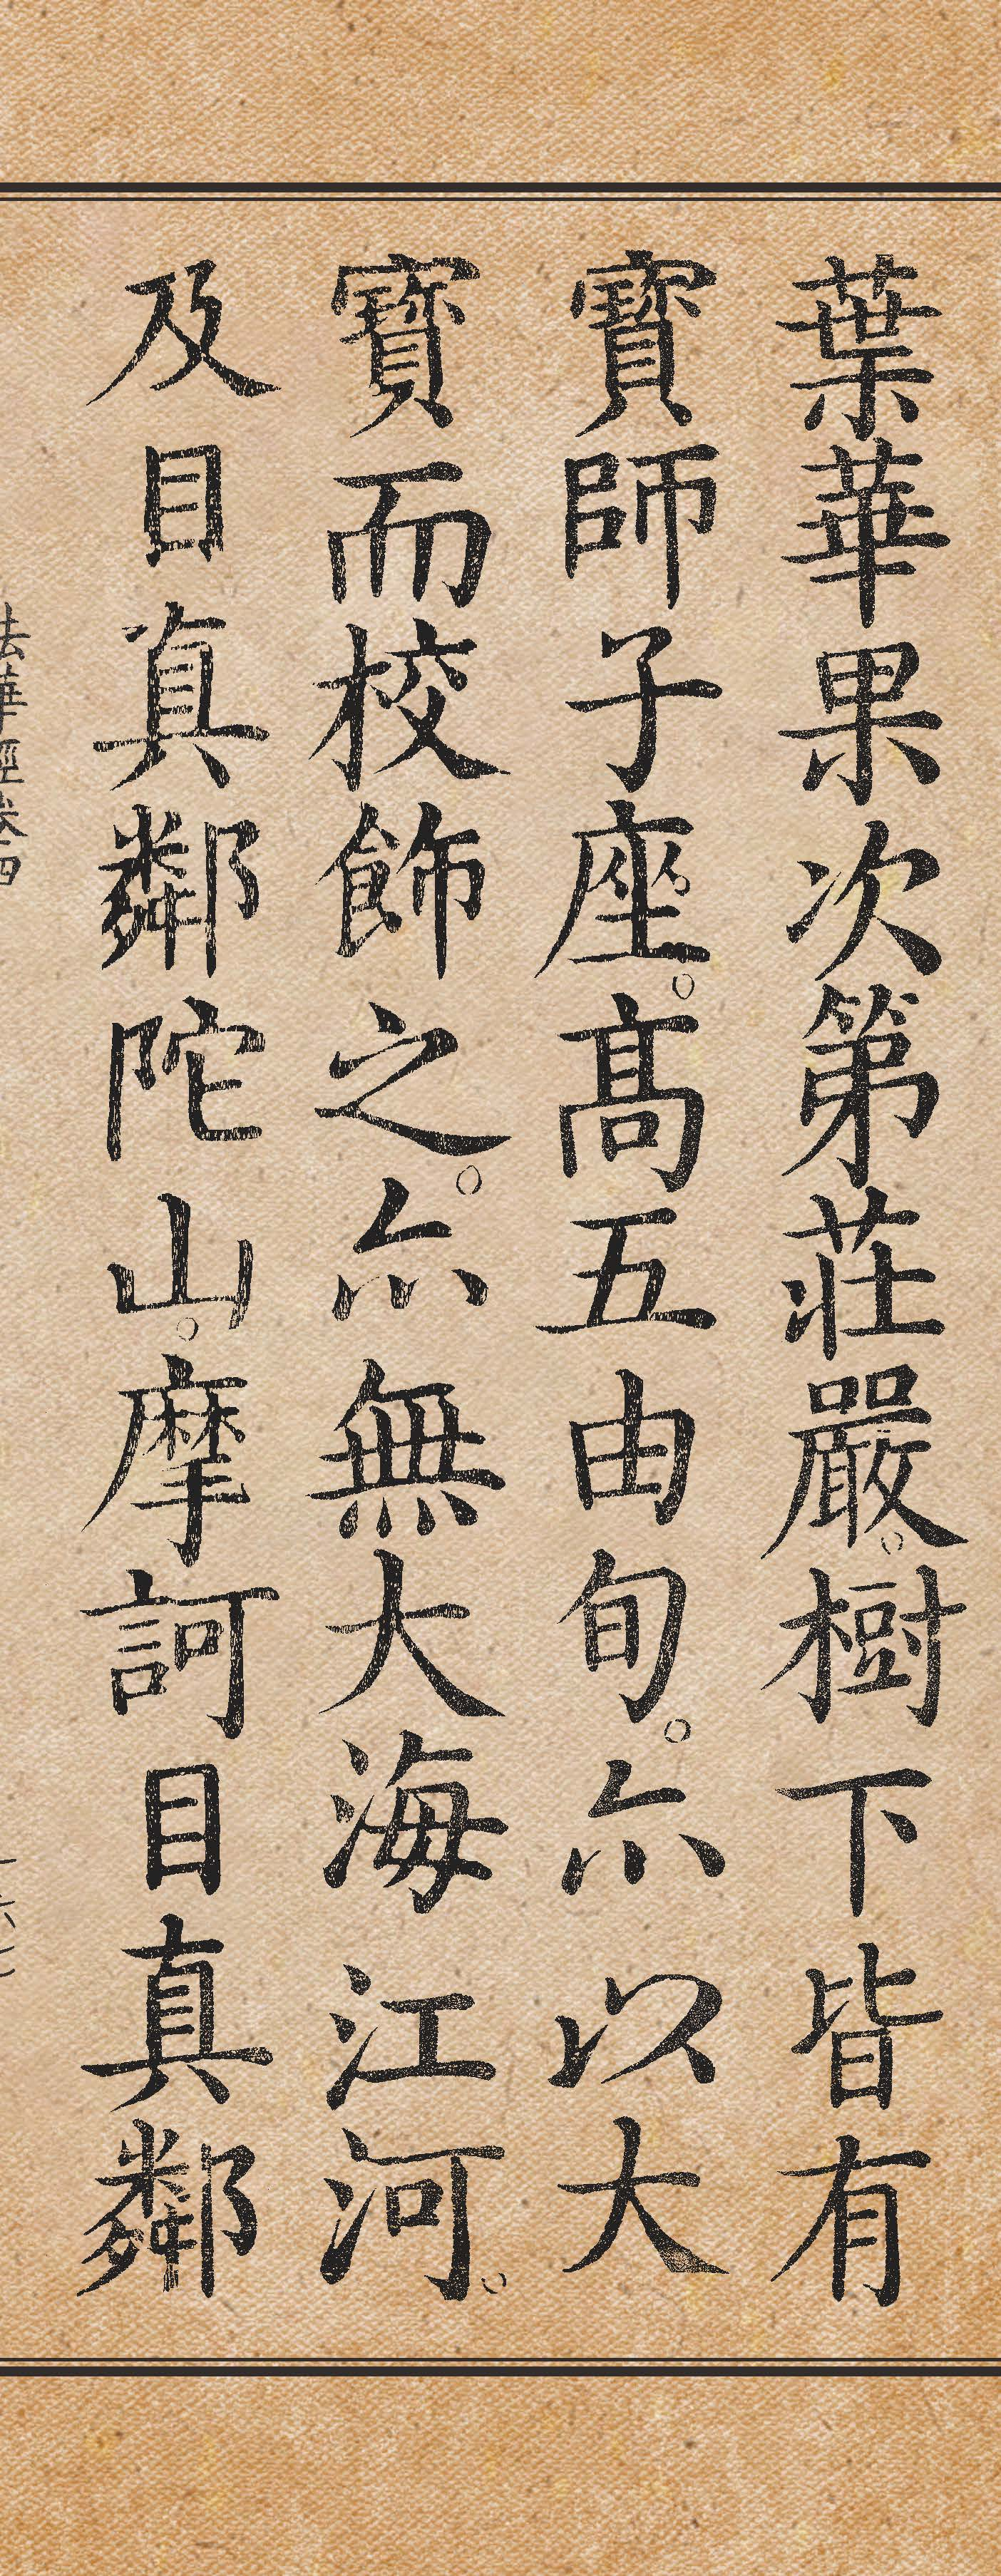 葉華果次第莊嚴。樹下皆有
寶師子座。髙五由旬。亦以大
寶而校飾之。亦無大海江河。
及目真鄰陀山。摩訶目真鄰
法華經卷四